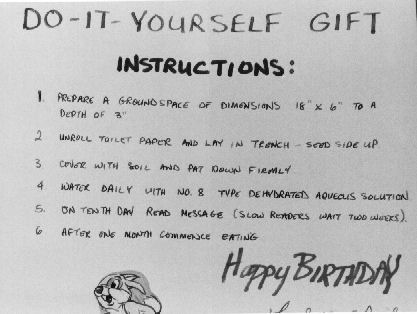 DO-IT-YOURSELF GIFT
INSTRUCTIONS:
1. PREPARE A GROUNDSPACE OF DIMENSIONS 18" X 6" TO A
DEPTH OF 3"
2 UNROLL TOILET PAPER AND LAY IN TRENCH - SEED SIDE UP
3. COVER WITH SOIL AND PAT DOWN FIRMLY
4 WATER DAILY WITH NO. 8 TYPE DEHYDRATED AQUEOUS SOLUTION
5. ON TENTH DAY READ MESSAGE (SLOW READERS WAIT TWO WEEKS).
6 AFTER ONE MONTH COMMENCE EATING
Happy BIRTHDAY